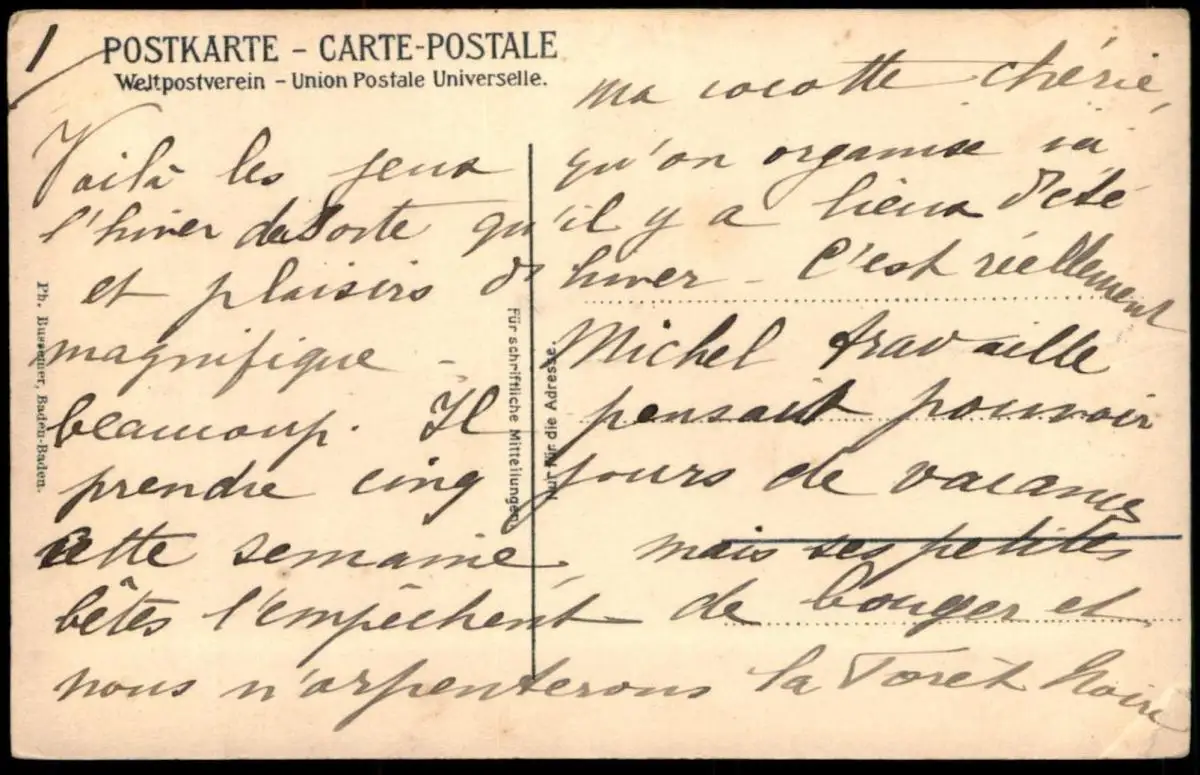 1
POSTKARTE – CARTE-POSTALE
Weltpostverein – Union Postale Universelle.
ma cocotte chérie,
Voilà les jeux qu'on organise ici
l'hiver de sorte qu'il y a lieux d'été
et plaisirs d'hiver – C'est réellement
magnifique – Michel travaille
beaucoup. Il pensait pouvoir
prendre cinq jours de vacances
cette semaine, mais ses petites
bêtes l'empêchent de bouger et
nous n'arpenterons la Forêt Noire
Ph. Bussemer, Baden-Baden.
Für schriftliche Mitteilungen
nur für die Adresse.